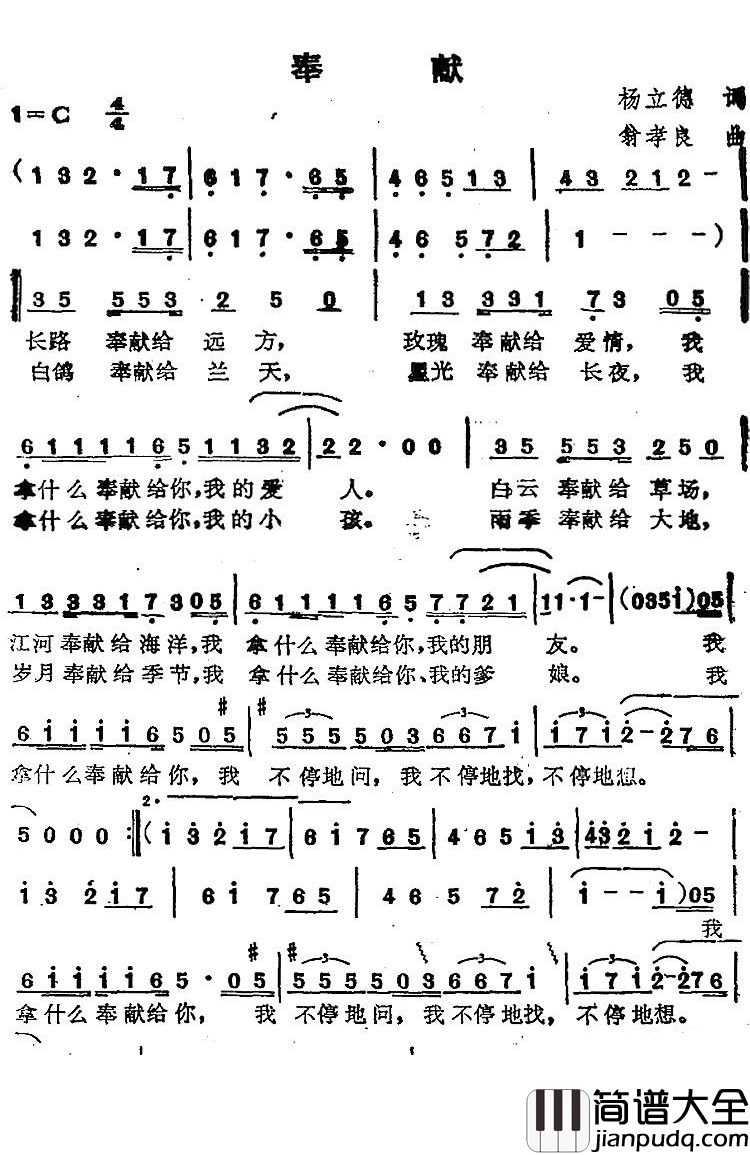 奉 献
1=C 4/4
杨立德 词
翁孝良 曲
(1 3 2 · 1 7 | 6 1 7 · 6 5 | 4 6 5 1 3 | 4 3 2 1 2 – |
1 3 2 · 1 7 | 6 1 7 · 6 5 | 4 6 5 7 2 | 1 – – – )
3 5 5 5 3 2 5 0 | 1 3 3 3 1 7 3 0 5
长路 奉献给 远 方, 玫瑰 奉献给 爱情, 我
白鸽 奉献给 兰 天, 星光 奉献给 长夜, 我
6 1 1 1 1 6 5 1 1 3 2 | 2 2 · 0 0 | 3 5 5 5 3 2 5 0
拿什么奉献给你,我的爱 人。 白云 奉献给 草场,
拿什么奉献给你,我的小 孩。 雨季 奉献给 大地,
1 3 3 3 1 7 3 0 5 | 6 1 1 1 1 6 5 7 7 2 1 | 1 1 · 1 – | (0 3 5 1) 0 5
江河奉献给海洋,我 拿什么奉献给你,我的朋 友。 我
岁月奉献给季节,我 拿什么奉献给你、我的爹 娘。 我
6 1 1 1 1 6 5 0 5 | # 5 5 5 5 0 3 6 6 7 1 | 1 7 1 2 – 2 7 6
拿什么奉献给你, 我 不停地问,我不停地找,不停地想。
5 0 0 0 :‖ 2. ( 1 3 2 1 7 | 6 1 7 6 5 | 4 6 5 1 3 | 4 3 2 1 2 – |
1 3 2 1 7 | 6 1 7 6 5 | 4 6 5 7 2 | 1 – – 1 ) 0 5
我
6 1 1 1 1 6 5 · 0 5 | # 5 5 5 5 0 3 6 6 7 1 | 1 7 1 2 – 2 7 6
拿什么奉献给你, 我 不停地问,我不停地找, 不停地想。
简谱大全
jianpudq.com